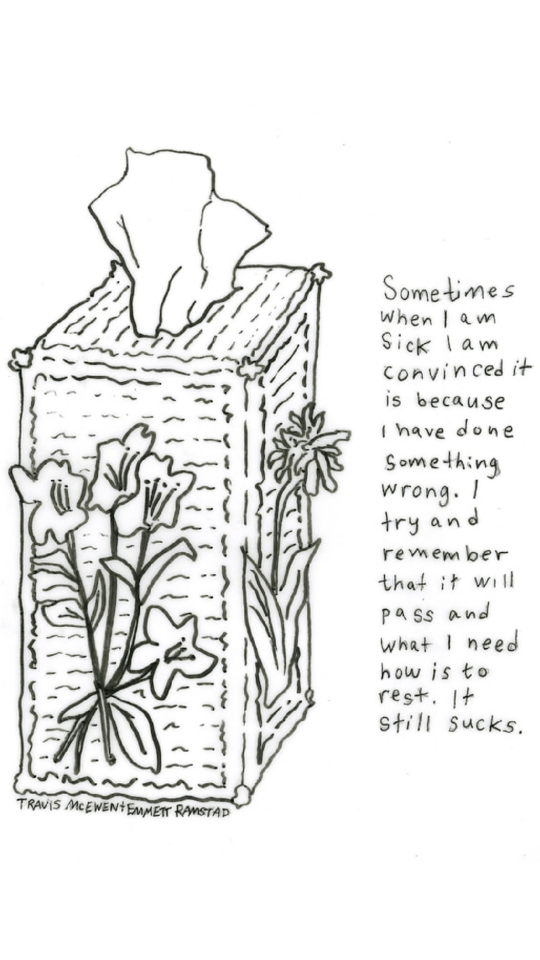 Sometimes
when I am
Sick I am
convinced it
is because
I have done
something
wrong. I
try and
remember
that it will
pass and
what I need
how is to
rest. It
still sucks.
TRAVIS MCEWEN+EMMETT RAMSTAD